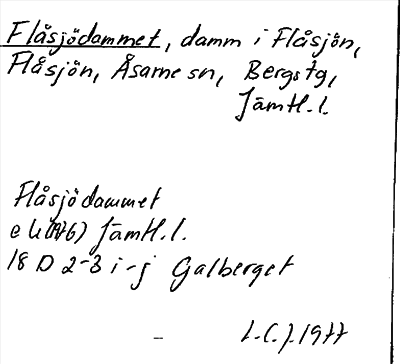 Flåsjödammet, damm i Flåsjön,
Flåsjön, Åsarne sn, Bergs tg,
Jämtl. l.
Flåsjödammet
Jämtl. l.
18 D 2-3 i-j Galberget
- L.C.J. 1977